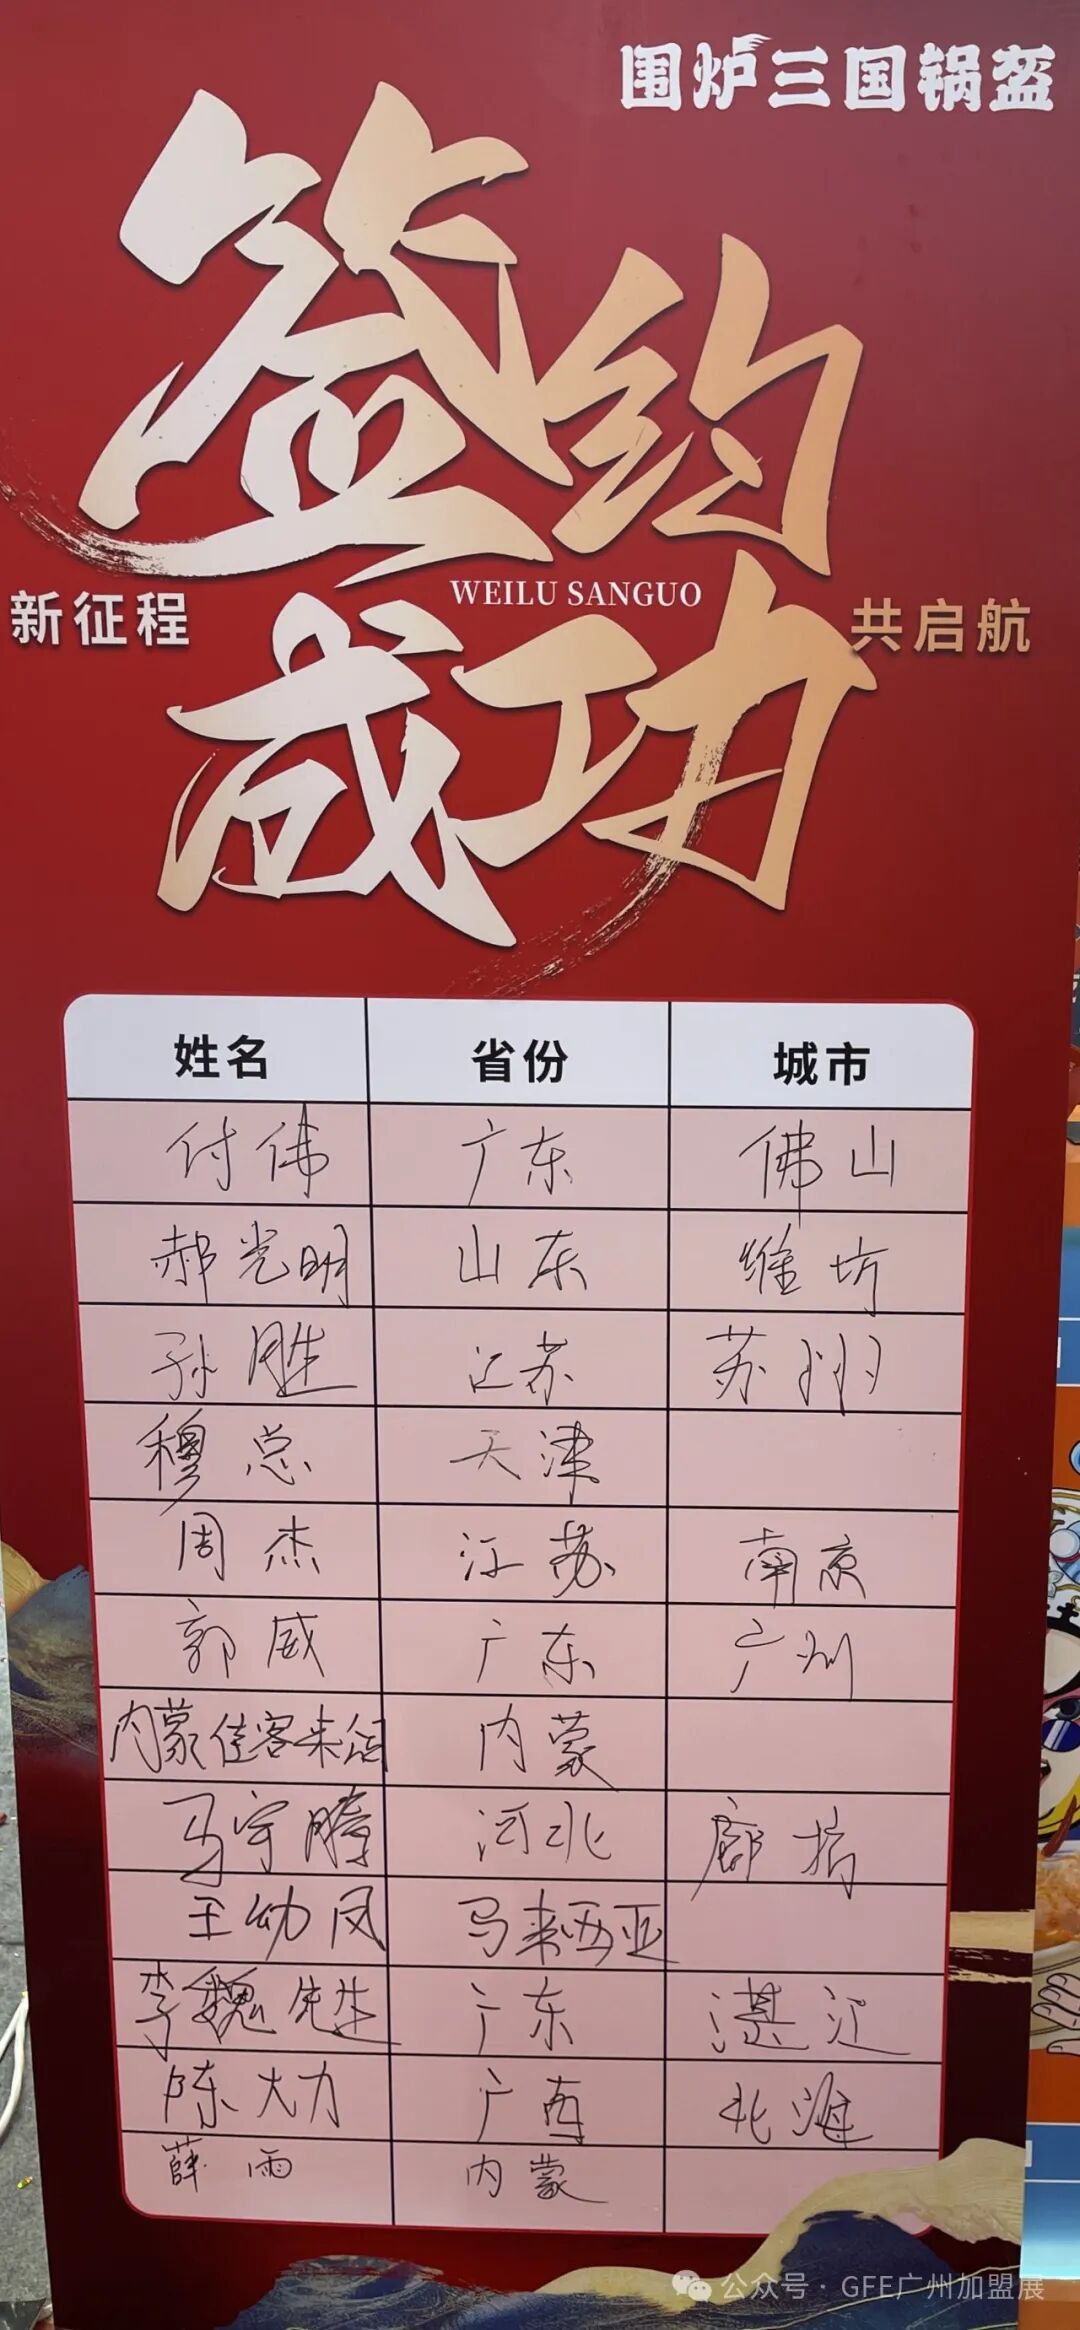 围炉三国锅盔
签约
WEILU SANGUO
新征程
共启航
成功
姓名 省份 城市
付伟 广东 佛山
郝光明 山东 潍坊
孙胜 江苏 苏州
穆总 天津
周杰 江苏 南京
郭威 广东 广州
内蒙佳客来 内蒙
马宇腾 河北 廊坊
王幼凤 马来西亚
李魏先生 广东 湛江
陈大力 广西 北海
薛雨 内蒙
公众号·GFE广州加盟展